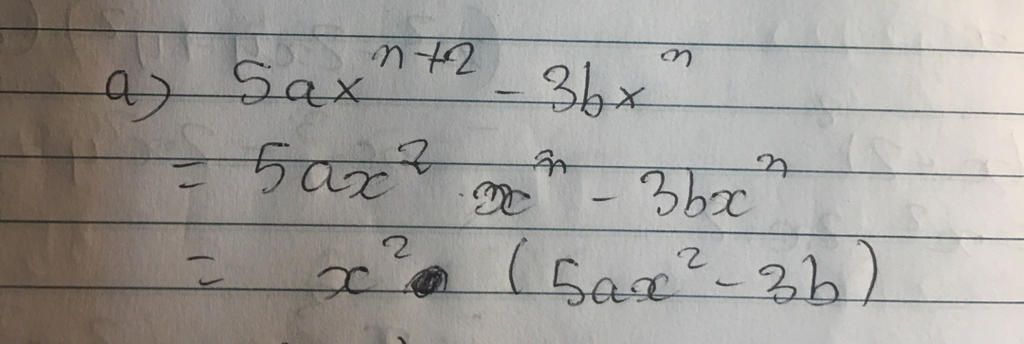 a) 5ax^{n+2} - 3bx^n
= 5ax^2 · x^n - 3bx^n
= x^2 (5ax^2 - 3b)